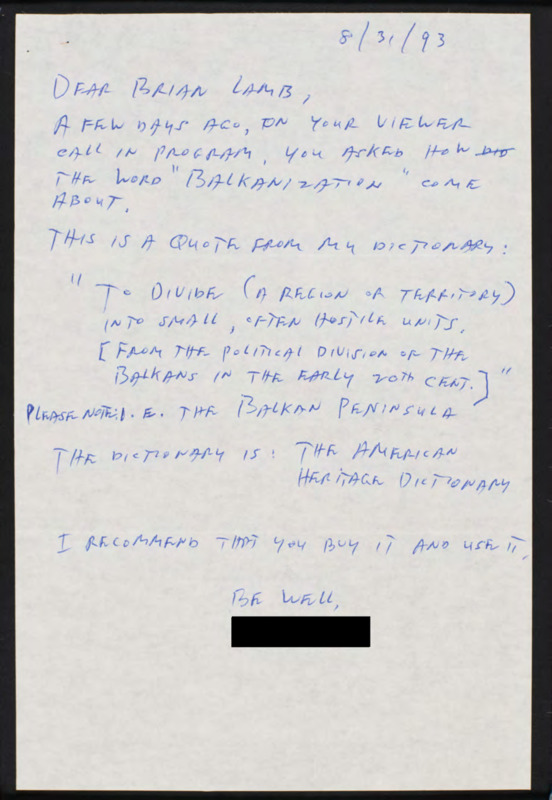 8/31/93
DEAR BRIAN LAMB,
A FEW DAYS AGO, ON YOUR VIEWER
CALL IN PROGRAM, YOU ASKED HOW DID
THE WORD "BALKANIZATION" COME
ABOUT.
THIS IS A QUOTE FROM MY DICTIONARY:
"TO DIVIDE (A REGION OR TERRITORY)
INTO SMALL, OFTEN HOSTILE UNITS.
[FROM THE POLITICAL DIVISION OF THE
BALKANS IN THE EARLY 20TH CENT.]"
PLEASE NOTE: I.E. THE BALKAN PENINSULA
THE DICTIONARY IS: THE AMERICAN
HERITAGE DICTIONARY
I RECOMMEND THAT YOU BUY IT AND USE IT.
BE WELL,